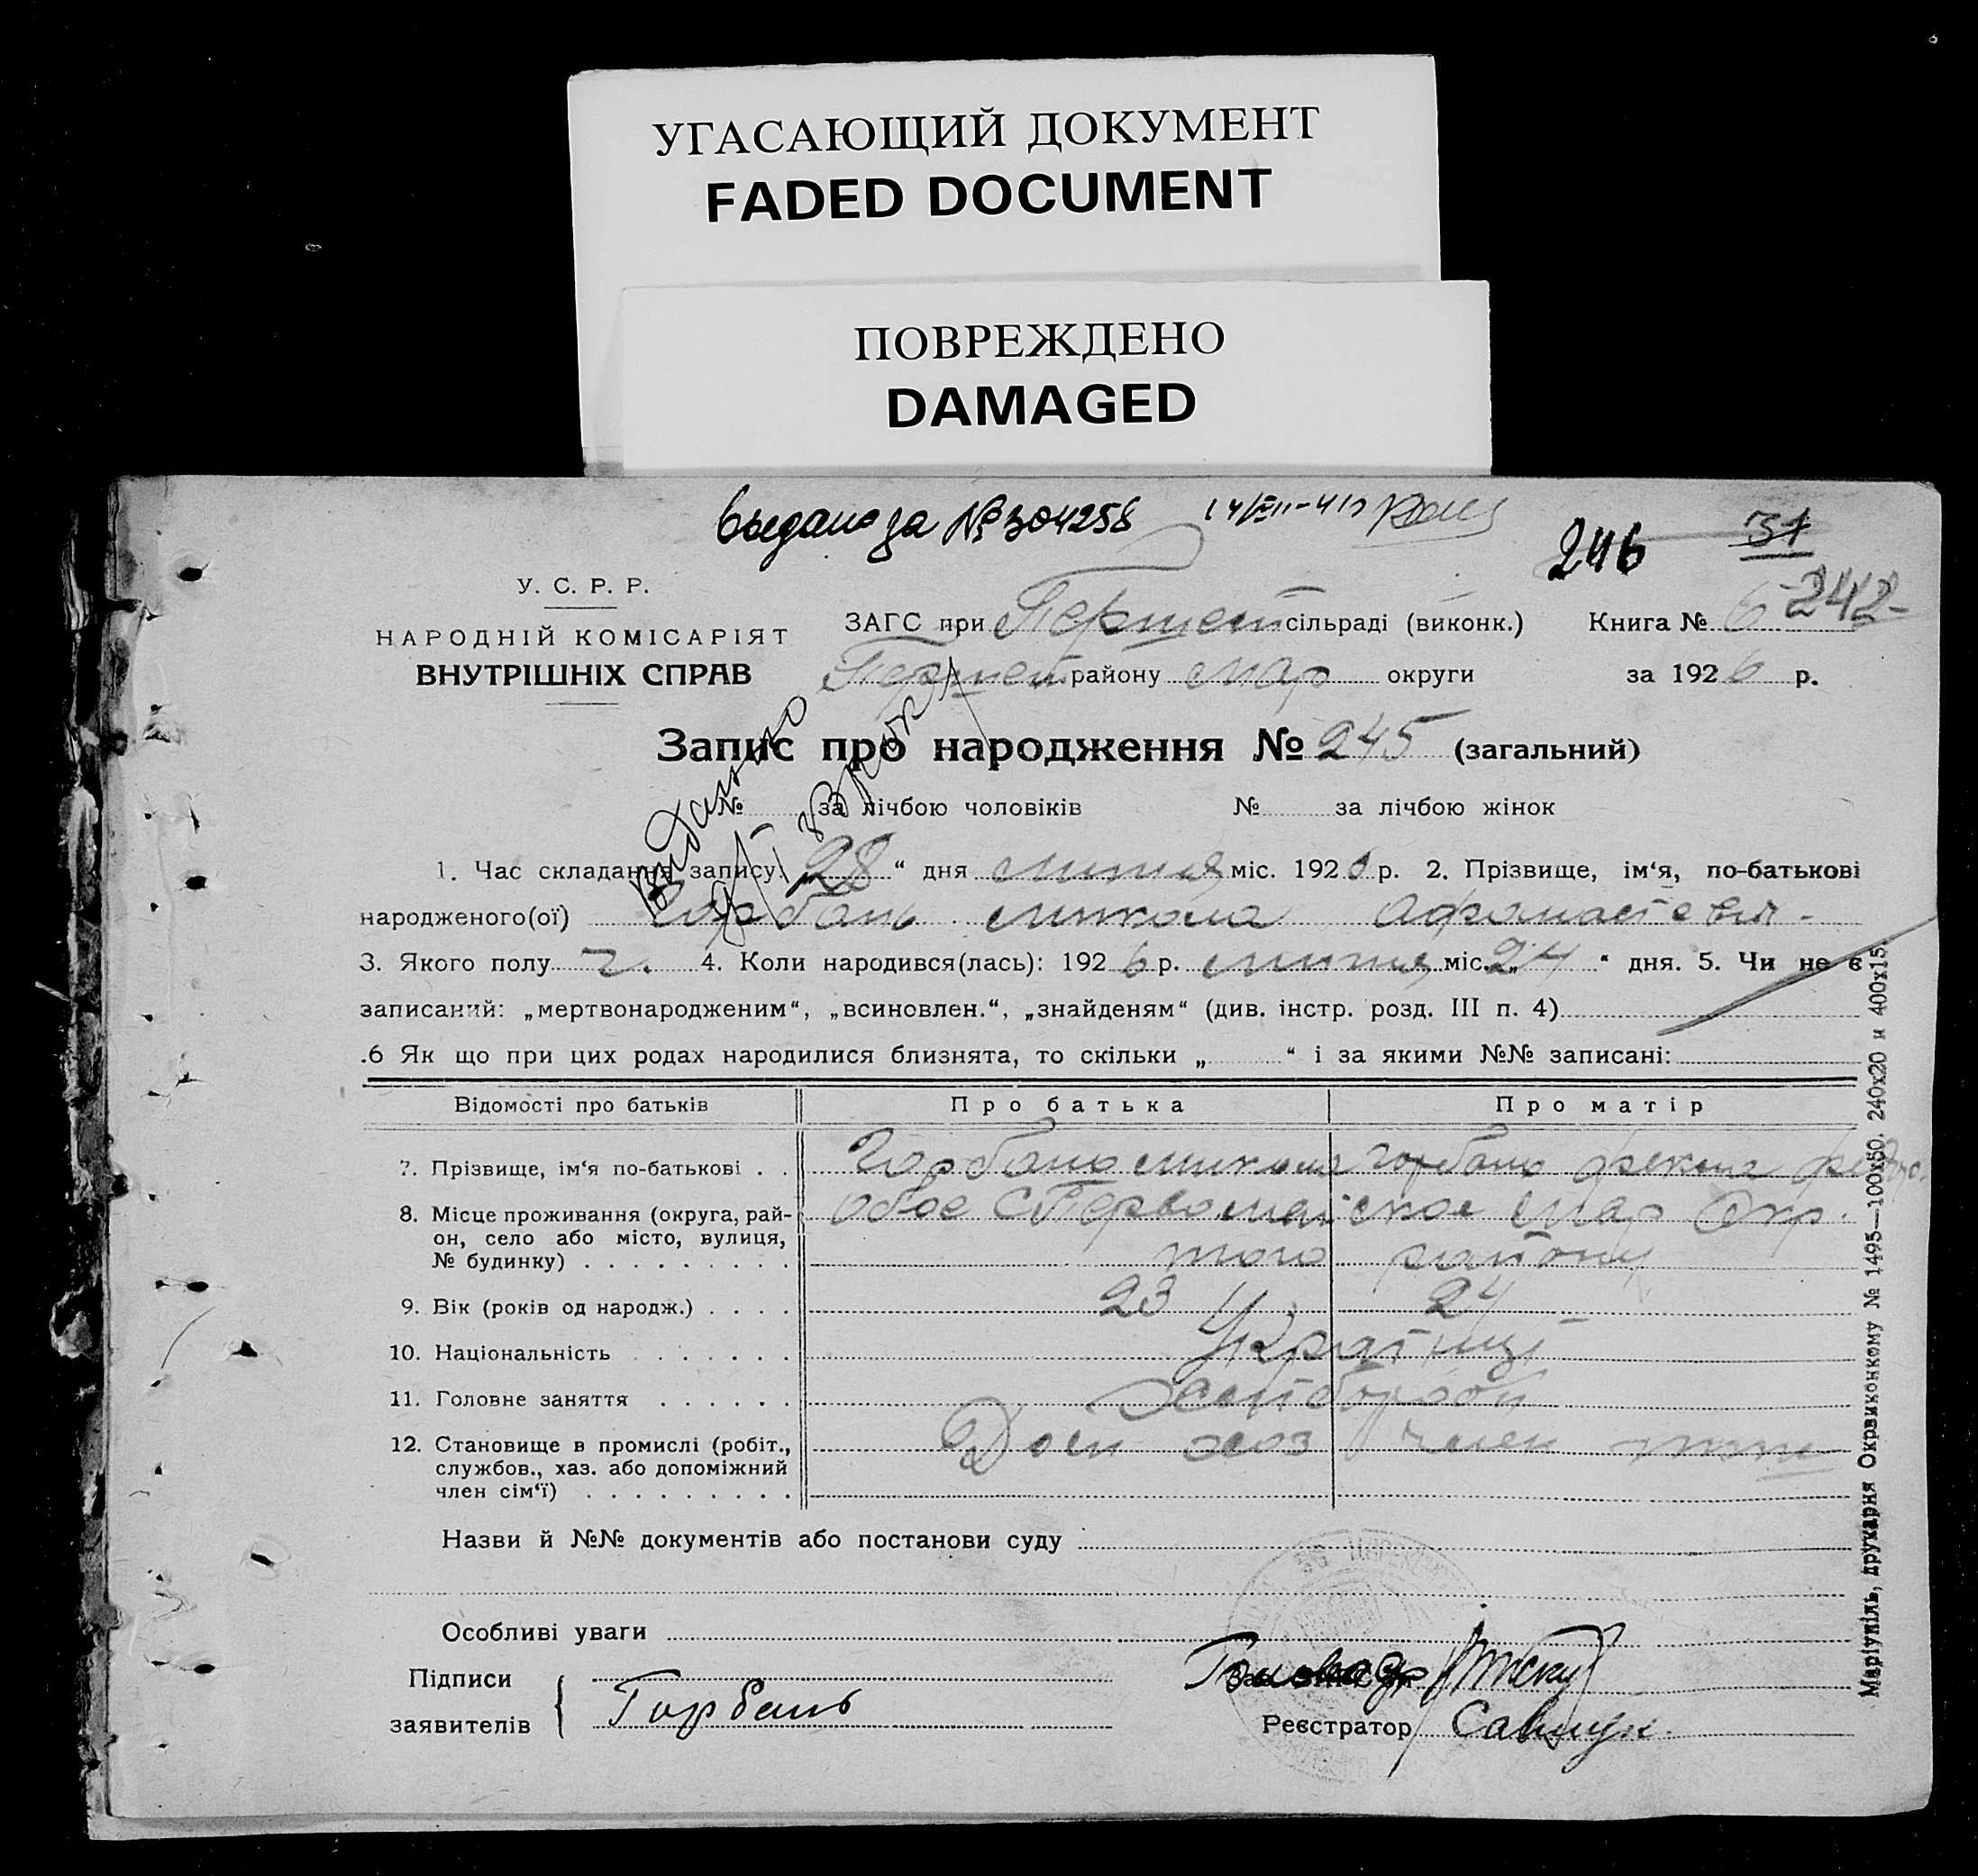 УГАСАЮЩИЙ ДОКУМЕНТ
FADED DOCUMENT
ПОВРЕЖДЕНО
DAMAGED
Выдано за № 304258
246 31
242-
У. С. Р. Р.
НАРОДНІЙ КОМІСАРІЯТ
ВНУТРІШНІХ СПРАВ
ЗАГС при сільраді (виконк.) Книга № 6
району мар округи за 1926 р.
Видано
Запис про народження № 245 (загальний)
№ за лічбою чоловіків № за лічбою жінок
1. Час складання запису: „28“ дня липня міс. 1926 р. 2. Прізвище, ім‘я, по-батькові
народженого(ої) Горбань Микола
3. Якого полу ч. 4. Коли народився(лась): 1926 р. липня міс. „24“ дня. 5. Чи не є
записаний: „мертвонародженим“, „всиновлен.“, „знайденям“ (див. інстр. розд. III п. 4)
.6 Як що при цих родах народилися близнята, то скільки „ “ і за якими №№ записані:
Відомості про батьків Про батька Про матір
7. Прізвище, ім‘я по-батькові . . Горбань Горбань
8. Місце проживання (округа, рай-
он, село або місто, вулиця,
№ будинку) . . . . . . . . .
обоє с Первомайское мар Окр.
того району
9. Вік (років од народж.) . . . . 23 24
10. Національність . . . . . . . Українці
11. Головне заняття . . . . . . Хлібороби
12. Становище в промислі (робіт.,
службов., хаз. або допоміжний
член сім‘ї) . . . . . . . . .
хоз член
Назви й №№ документів або постанови суду
Особливі уваги
Підписи
заявителів
Горбань
Реєстратор Савчук
Маріупіль, друкарня Окрвиконкому № 1495—100х50. 240х20 и 400х15.